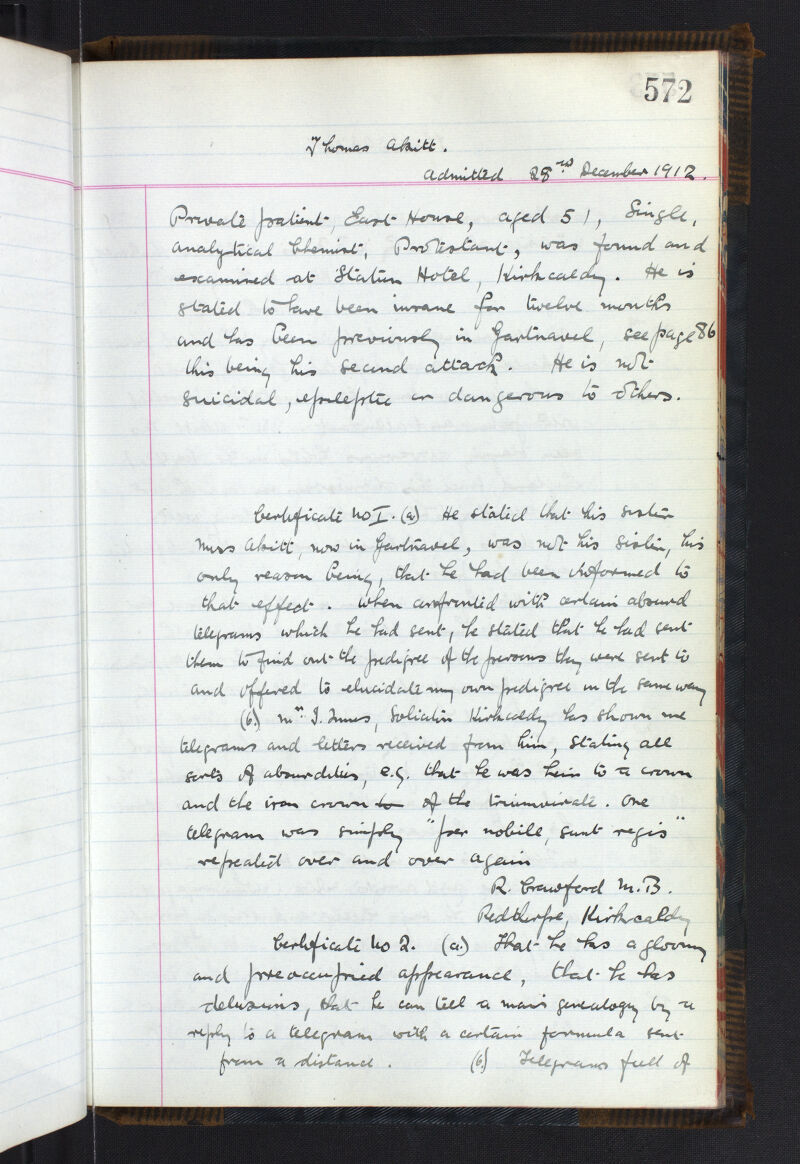 572
Thomas Akitt.
Admitted 28th December 1912.
Private patient, East House, aged 51, Single,
analytical Chemist, Protestant, was found and
examined at Station Hotel, Kirkcaldy. He is
stated to have been insane for twelve months
and has been previously in Gartnavel, see page 86
this being his second attack. He is not
suicidal, epileptic or dangerous to others.
Certificate No I. (a) He stated that his sister
Miss Akitt, now in Gartnavel, was not his sister, his
only reason being, that he had been informed to
that effect. When confronted with certain absurd
telegrams which he had sent, he stated that he had sent
them to find out the pedigree of the persons they were sent to
and offered to elucidate my own pedigree in the same way
(b) Mr. J. Innes, Solicitor Kirkcaldy has shown me
telegrams and letters received from him, stating all
sorts of absurdities, e.g. that he was heir to a crown
and the iron crown of the triumvirate. One
telegram was simply "per nobile, sunt regis"
repeated over and over again
R. Crawford M.B.
Kirkcaldy
Certificate No 2. (a) That he has a gloomy
and preoccupied appearance, that he has
delusions, that he can tell a man's genealogy by a
reply to a telegram with a certain formula sent
from a distance. (b) Telegrams full of